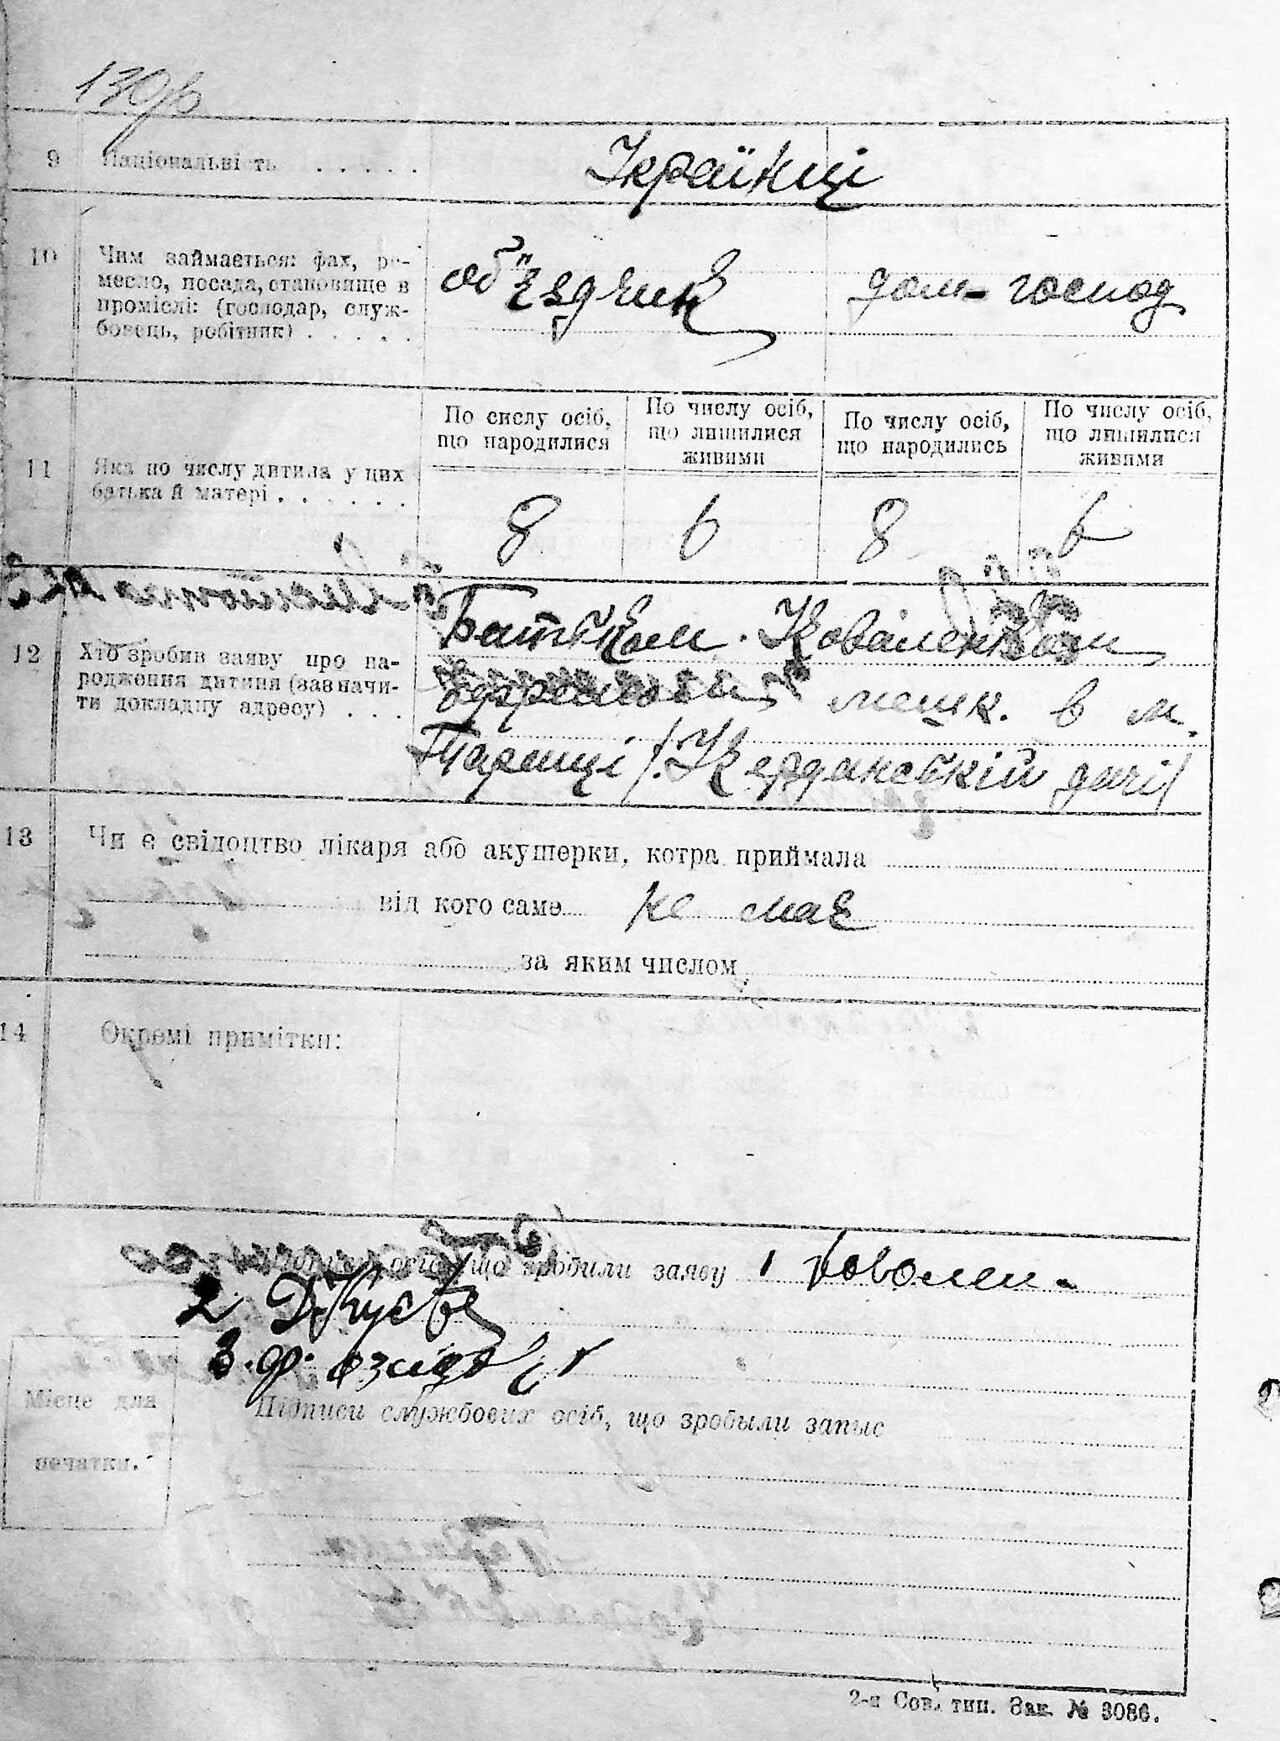 9 Національність . . . . .
Українці
10 Чим займається: фах, ре-
месло, посада, становище в
промислі: (господар, служ-
бовець, робітник) . . . . .
об'їздчик
дом-господ
11 Яка по числу дитина у цих
батька й матері . . . . . .
По числу осіб,
що народилися
По числу осіб,
що лишилися
живими
По числу осіб,
що народились
По числу осіб,
що лишилися
живими
8 6 8 6
12 Хто зробив заяву про на-
родження дитини (зазначи-
ти докладну адресу) . . .
Батьком. Коваленком
мешк. в м.
Таращі /Керданській дачі/
13 Чи є свідоцтво лікаря або акушерки, котра приймала
від кого саме не має
за яким числом
14 Окремі примітки:
осіб, що зробили заяву 1 Ковален-
2 Д.
3. Ф.
Підписи службових осіб, що зробыли запыс
Місце для
печатки.
2-я Сов. тип. Зак. № 3086.